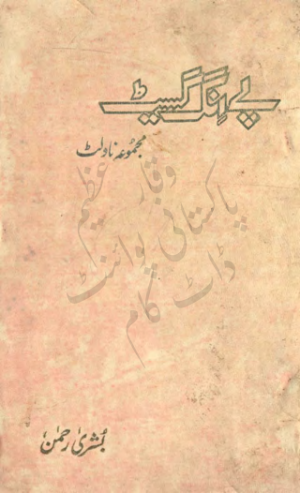 پے اِنگ گیسٹ
مجموعہ ناولٹ
وقار عظیم
پاکستانی پوائنٹ
ڈاٹ کام
بُشریٰ رحمٰن